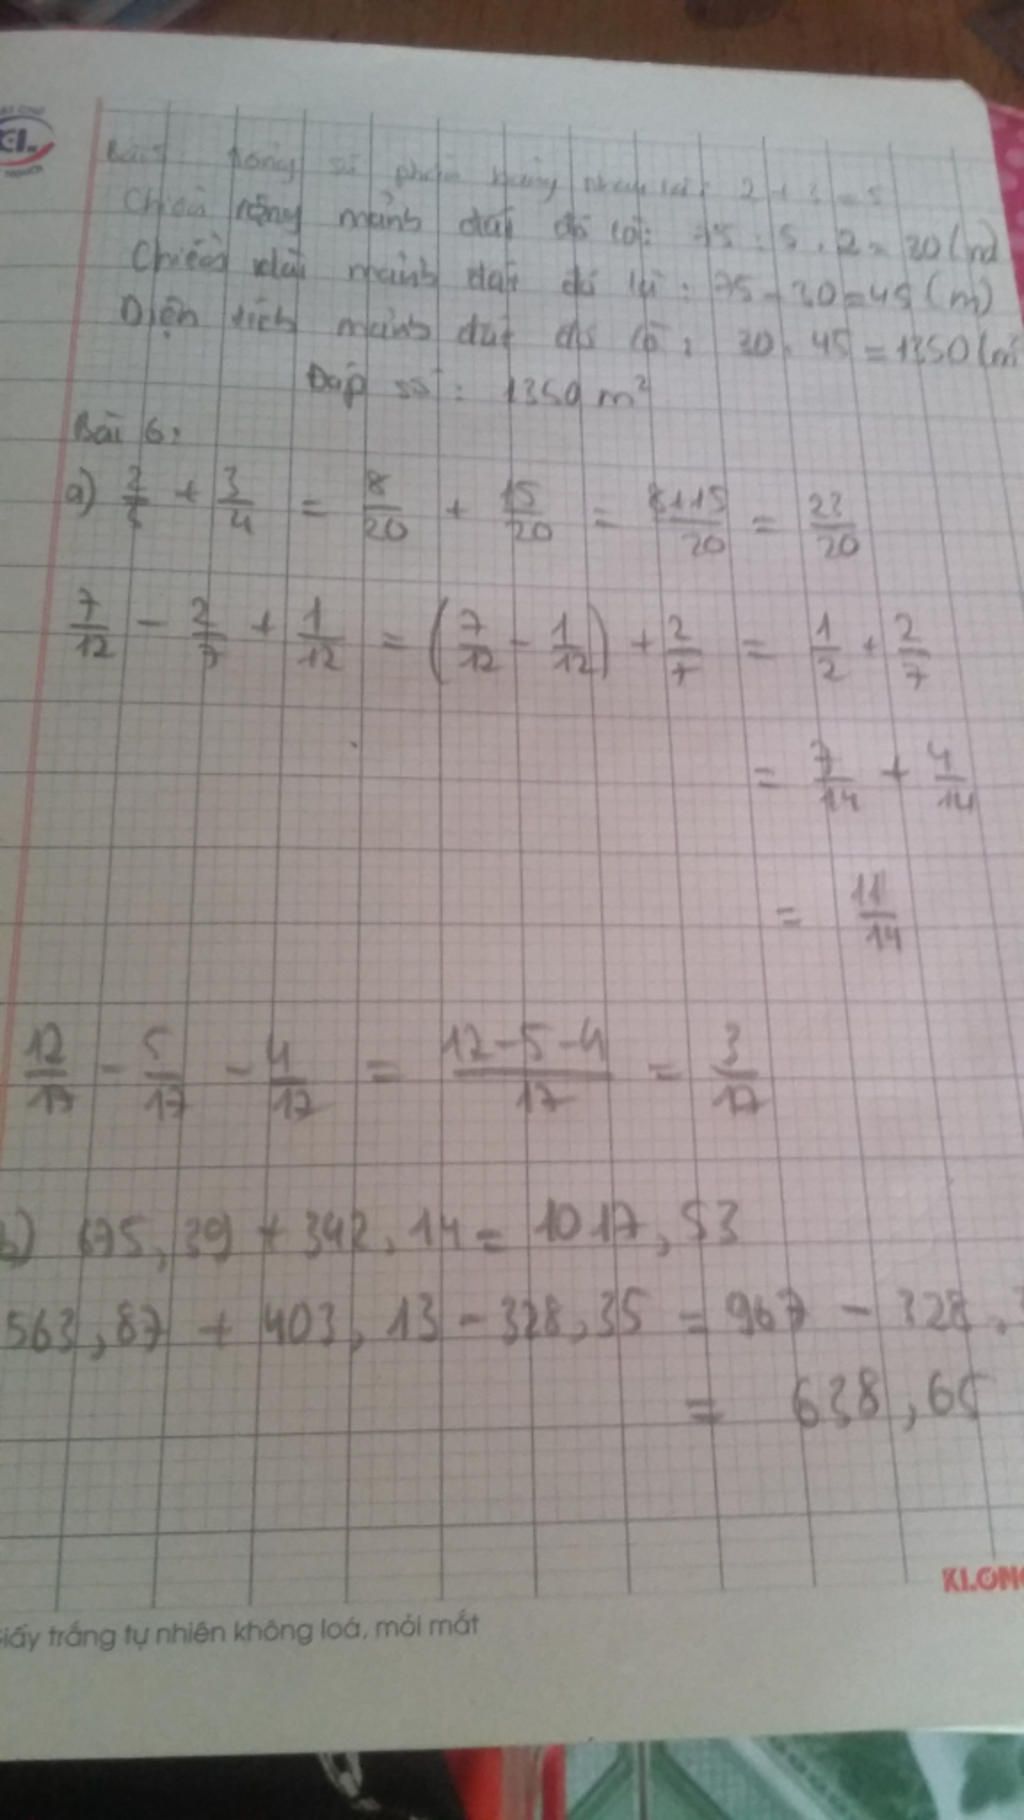 KI.
Bài 5: Tổng số phần bằng nhau là: 2 + 3 = 5
Chiều rộng mảnh đất đó là: 75 : 5 . 2 = 30 (m)
Chiều dài mảnh đất đó là : 75 - 30 = 45 (m)
Diện tích mảnh đất đó là : 30 . 45 = 1350 (m
Đáp số : 1350 m²
Bài 6:
a) 2/5 + 3/4 = 8/20 + 15/20 = 8+15/20 = 23/20
7/12 - 2/7 + 1/12 = (7/12 - 1/12) + 2/7 = 1/2 + 2/7
= 7/14 + 4/14
= 11/14
12/17 - 5/17 - 4/17 = 12-5-4/17 = 3/17
b) 675,39 + 342,14 = 1017,53
563,87 + 403,13 - 328,35 = 967 - 328,3
= 638,65
KLONG
Giấy trắng tự nhiên không loá, mỏi mắt